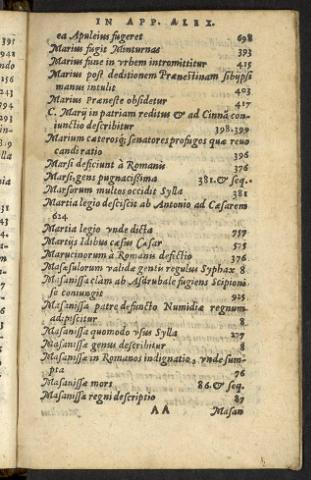 IN APP. ALEX.
ea Apuleius fugeret 698
Marius fugit Minturnas 393
Marius fune in vrbem intromittitur 415
Marius post deditionem Prænestinam sibypsi
manus intulit 403
Marius Præneste obsidetur 417
C. Marij in patriam reditus & ad Cinnā con
iunctio describitur 398.399
Marium cæterosq; senatores profugos quæ reuo
candi ratio 396
Marsi deficiunt à Romanis 376
Marsi, gens pugnacissima 381.& seq.
Marsorum multos occidit Sylla 381
Martia legio desciscit ab Antonio ad Cæsarem
624
Martia legio vnde dicta 757
Martijs Idibus cæsus Cæsar 575
Marucinorum à Romanis defictio 376
Masæsulorum validæ gentis regulus Syphax 8
Masanissa clam ab Asdrubale fugiens Scipioni
se coniungit 925
Masanissa patre defuncto Numidiæ regnum
adipiscitur 8
Masanissa quomodo vsus Sylla 277
Masanissæ genus describitur 8
Masanissæ in Romanos indignatio, vnde sum-
pta 76
Masanissæ mors 86.& seq.
Masanissæ regni descriptio 87
AA Masan
391
941
ndo
156
243
394
293
6
in-
8.9
lla